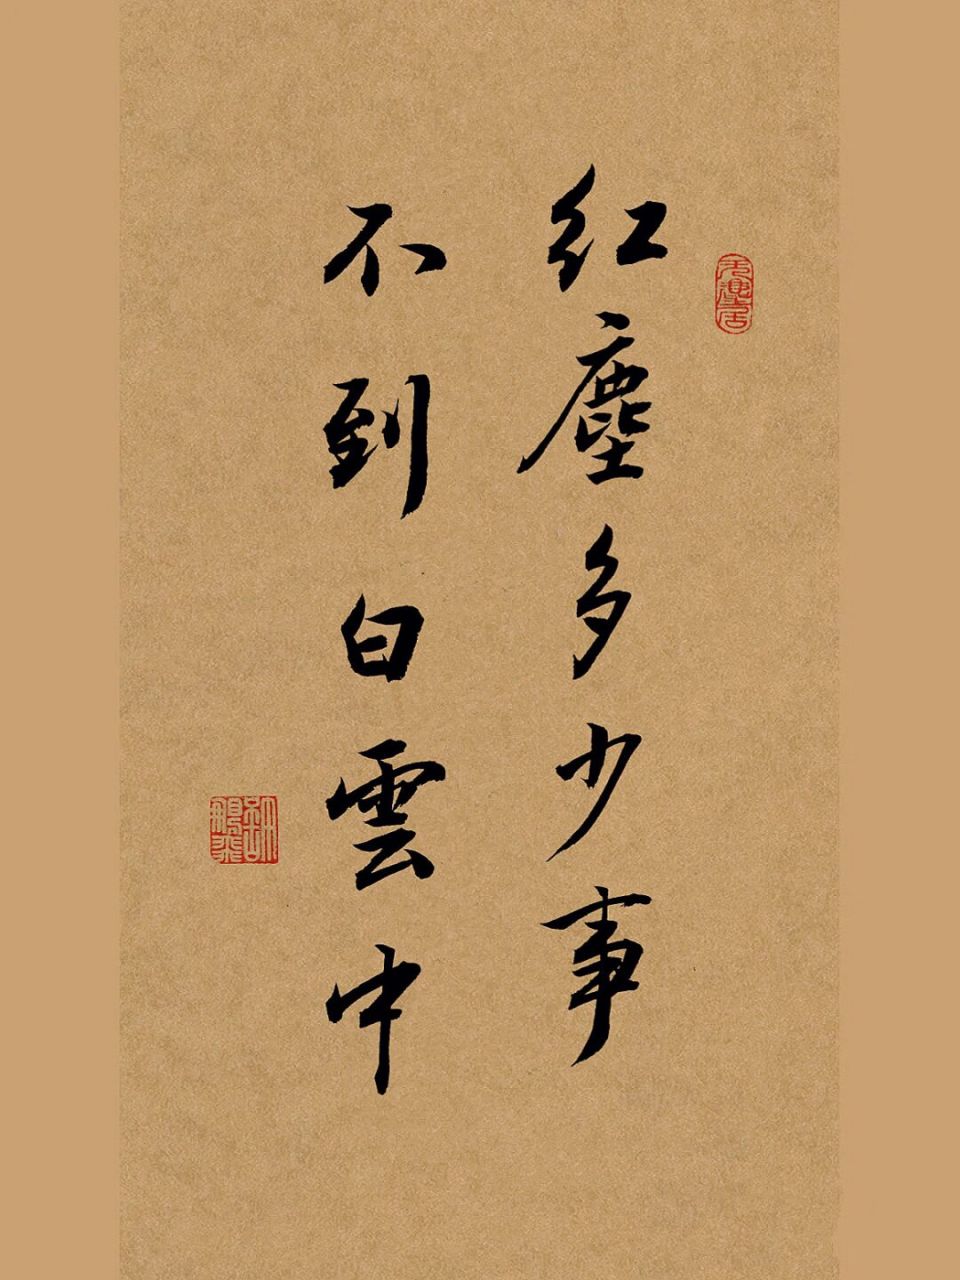 红塵多少事
不到白雲中